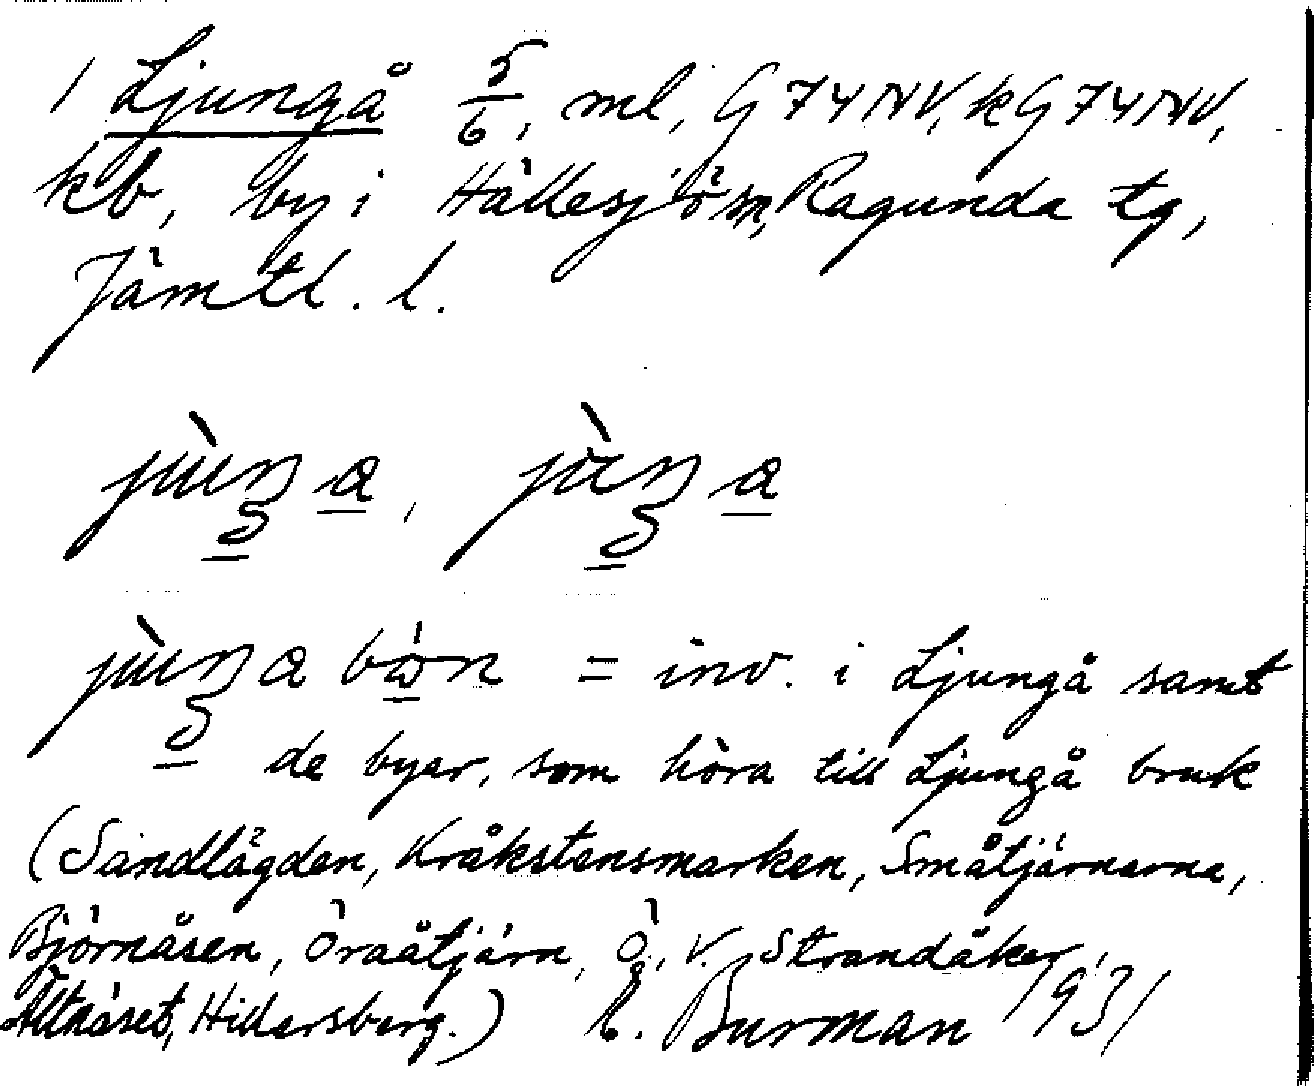 1 Ljungå 5/6, ml, G 74 NV, k G 74 NV,
kb, by i Hällesjö sn, Ragunda tg,
Jämtl. l.
= inv. i Ljungå samt
de byar, som höra till Ljungå bruk
(Sandlägden, Kråkstensmarken, Småtjärnarna,
Björnåsen, Öraåtjärn, Ö. V. Strandåker,
Hillersberg.) E. Burman 1931